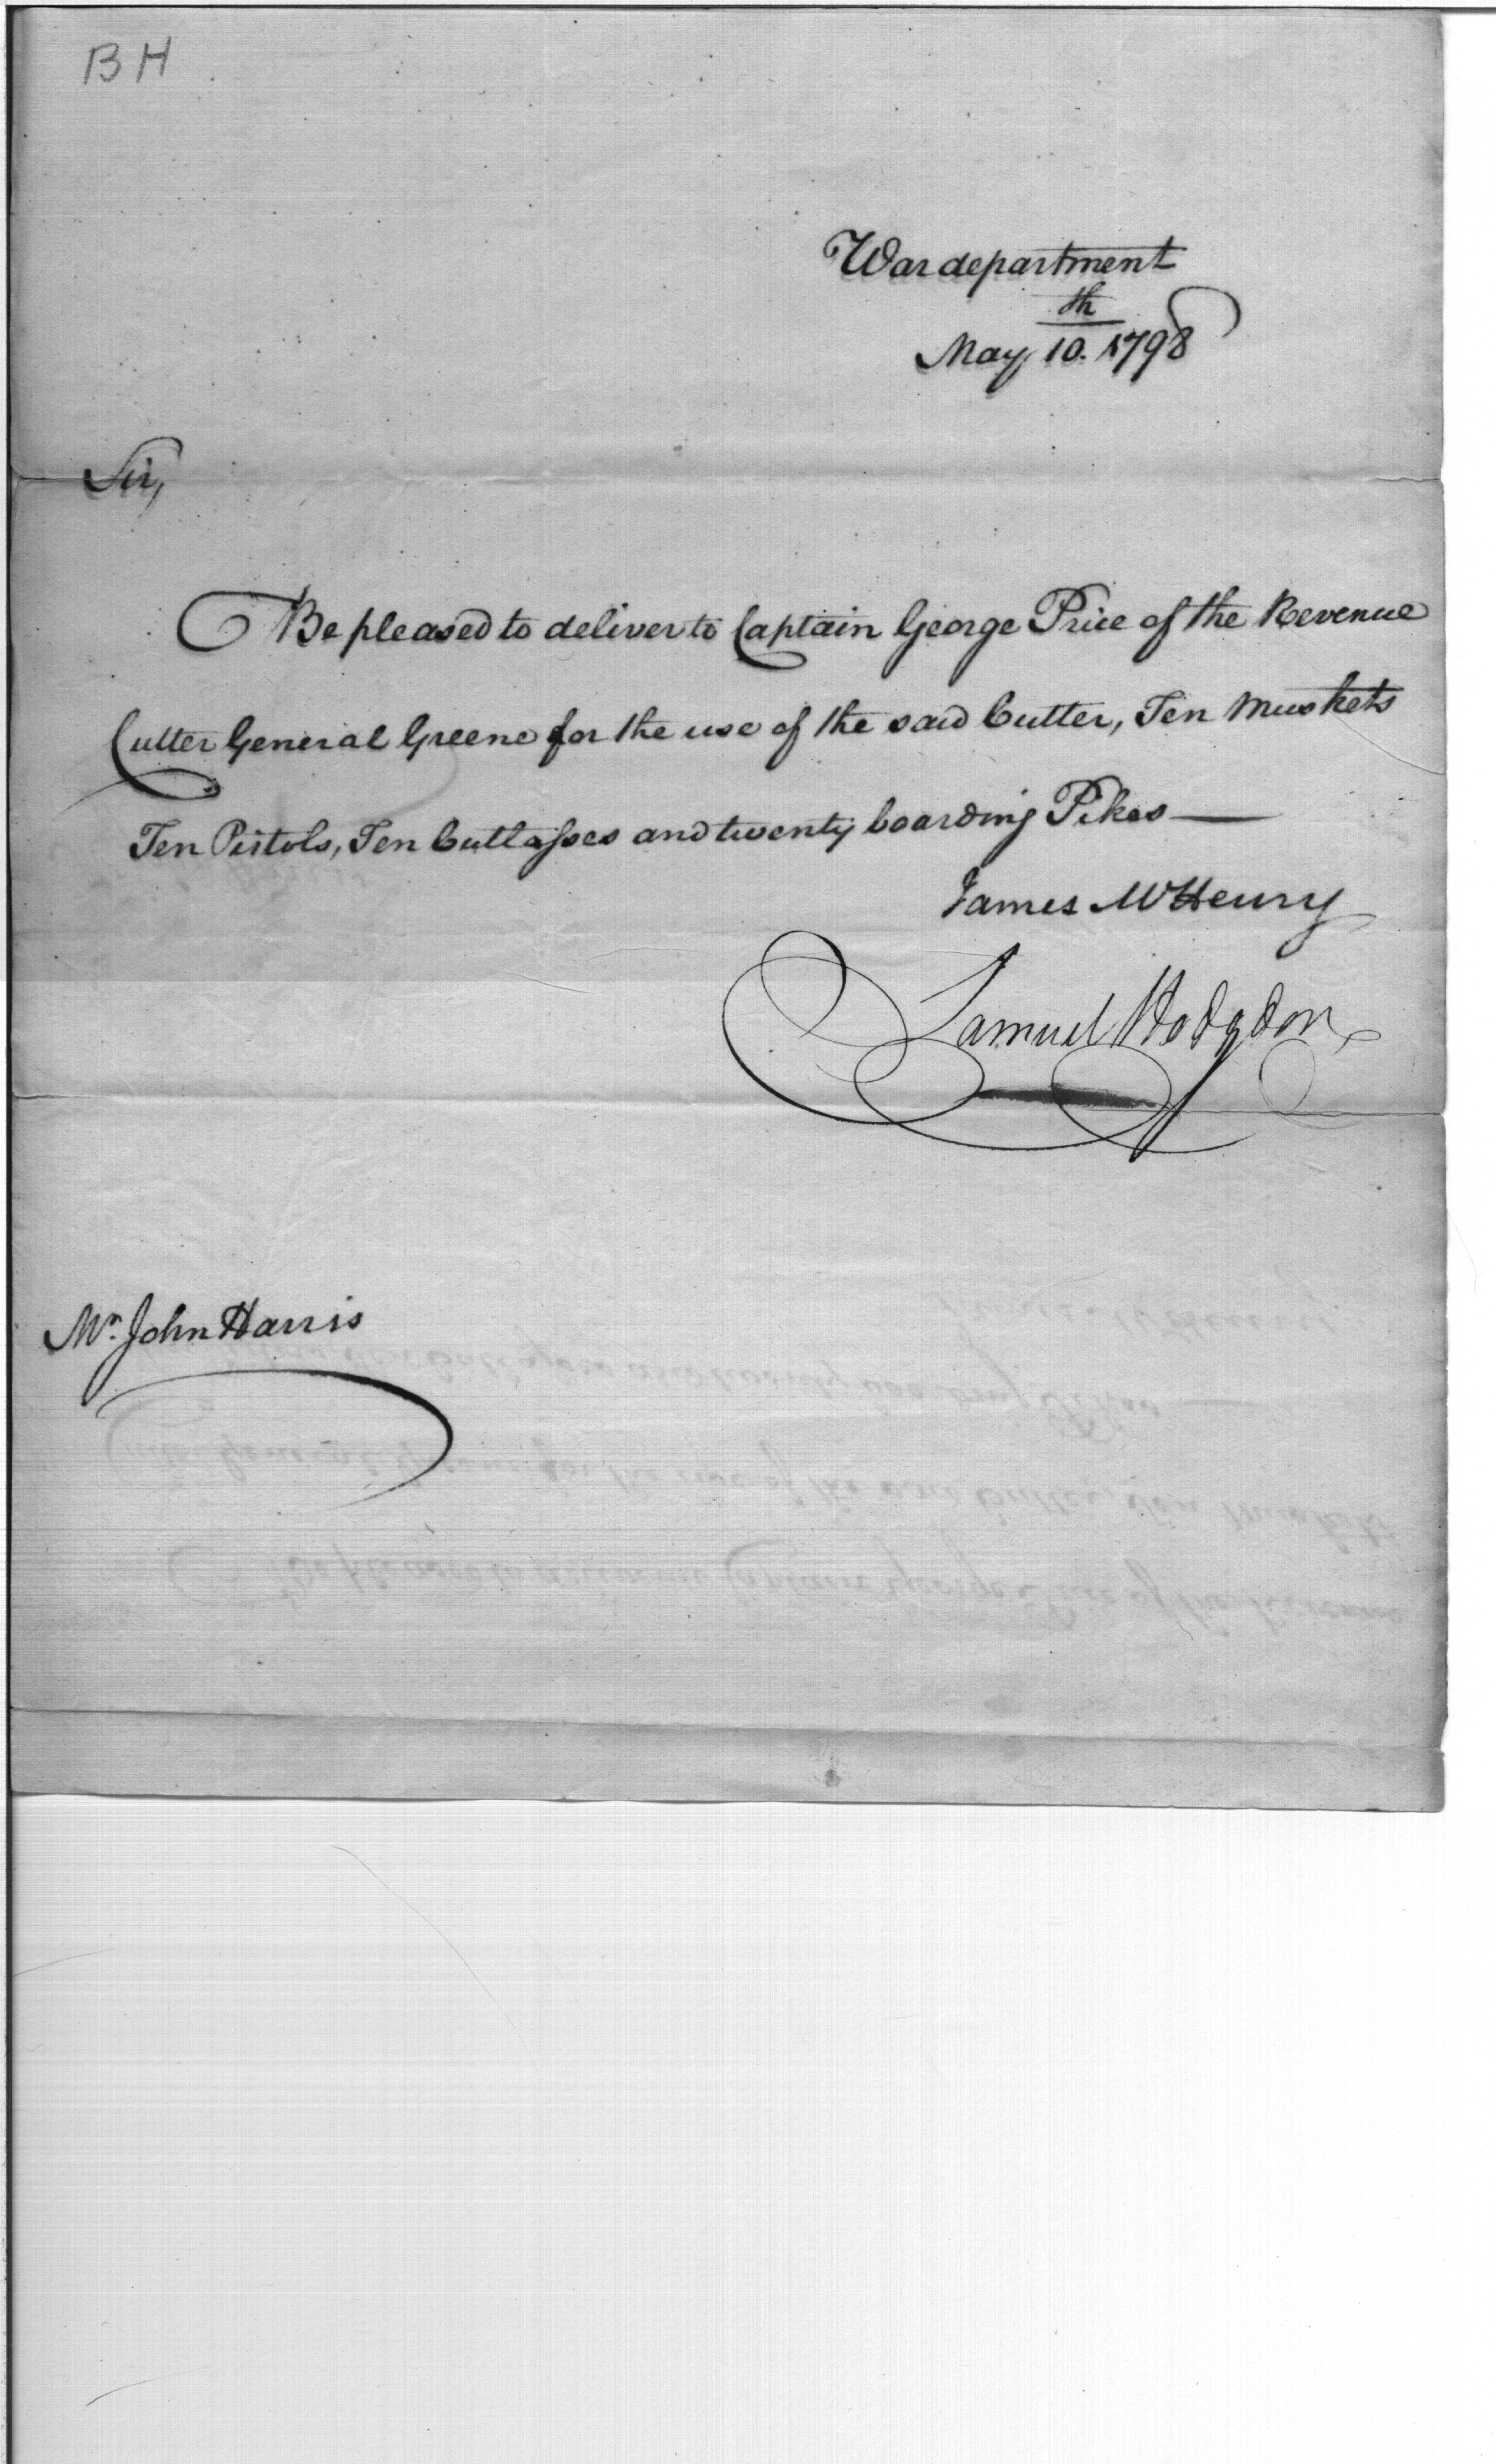 BH
War department
May 10.th 1798
Sir,
Be pleased to deliver to Captain George Price of the Revenue
Cutter General Greene for the use of the said Cutter, Ten Muskets
Ten Pistols, Ten Cutlasses and twenty boarding Pikes —
James McHenry
Samuel Hodgdon
Mr. John Harris